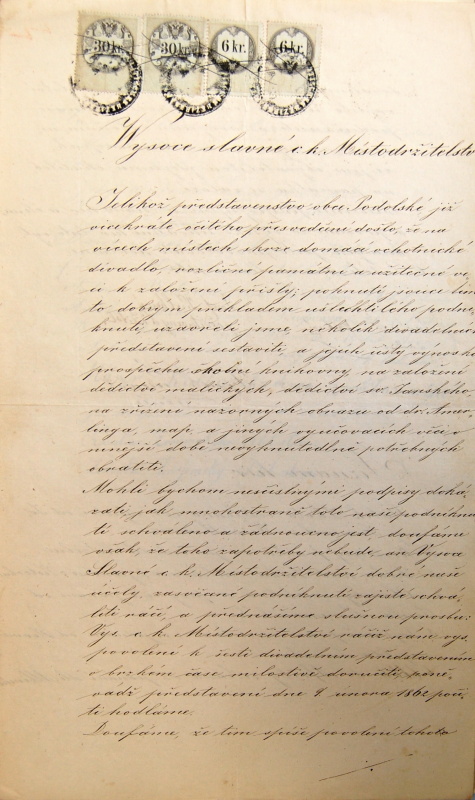 30 kr. 30 kr. 6 kr. 6 kr.
Wysoce slavné c. k. Místodržitelstvo
Jelikož představenstvo obce Podolské již
vícekráte očitého přesvedčení došlo, že na
vícech místech skrze domácá ochotnické
divadlo, rozličné památní a užitečné vě
ci k založení přišly; pohnuti jsouce tím
to dobrým příkladem ušlechtilého podni
knutí, uzavřeli jsme, několik divadelních
představení sestaviti, a jejich čistý výnosek
prospěchu školní knihovny na založení
dědictví maličkých, dědictví sv. Janského,
na zřízení názorných obrazu od dr. Amer
linga, map a jiných vyučovacích věcí v
nynější době nevyhnutedlně potřebných
obrátiti.
Mohli bychom nesčíslnými podpisy doká
zati, jak mnohostraně toto naše podniknu
tí schváleno a žádoucno jest, doufáme
však, že toho zapotřeby nebude, an Vysoce
Slavné c. k. Místodržitelství dobré naše
účely, zasvěcané podniknutí zajisté schvá
liti ráčí, a přednášíme slušnou prosbu:
Vys. c. k. Místodržitelství račiž nám vys.
povolení k šesti divadelním představením
v brzkém čase milostivě doručiti, pone
vádž představení dne 9 února 1862 poči
ti hodláme.
Doufáme, že tím spíše povolení tohoto